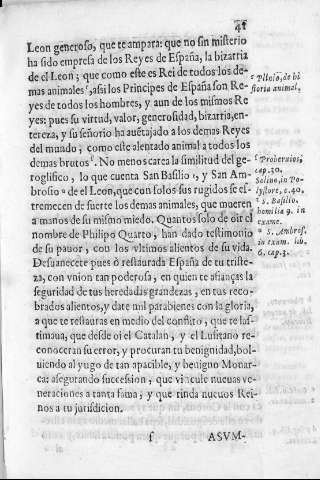 41
Leon generoso, que te ampara: que no sin misterio
ha sido empresa de los Reyes de España, la bizarria
de el Leon; que como este es Rei de todos los de-
mas animales, assi los Principes de España son Re-
yes de todos los hombres, y aun de los mismos Re
yes: pues su virtud, valor, generosidad, bizarria, en-
tereza, y su señorio ha auētajado a los demas Reyes
del mundo; como este alentado animal a todos los
demas brutos. No menos carea la similitud del ge-
roglifico, lo que cuenta San Basilio, y San Am-
brosio de el Leon, que con solos sus rugidos se es-
tremecen de suerte los demas animales, que mueren
a manos de su mismo miedo. Quantos solo de oir el
nombre de Philipo Quarto, han dado testimonio
de su pauor, con los vltimos alientos de su vida.
Desuanecete pues ô restaurada España de tu triste-
za, con vnion tan poderosa, en quien te afianças la
seguridad de tus heredadas grandezas, en tus reco-
brados alientos, y date mil parabienes con la gloria,
a que te restauras en medio del conflito, que te las-
timaua, que desde oi el Catalan, y el Lusitano re-
conoceran su error, y procuran tu benignidad, bol-
uiendo al yugo de tan apacible, y benigno Monar-
ca: asegurando succession, que vincule nueuas ve-
neraciones a tanta fama, y que rinda nueuos Rei-
nos a tu jurisdicion.
f ASVM-
Plinio, de hi
storia animal,
Proberuios,
cap. 30.
Solino, in Po
lystore, c. 40,
S. Basilio.
homilia 9. in
exame.
S. Ambros.
in exam. lib.
6. cap. 3.